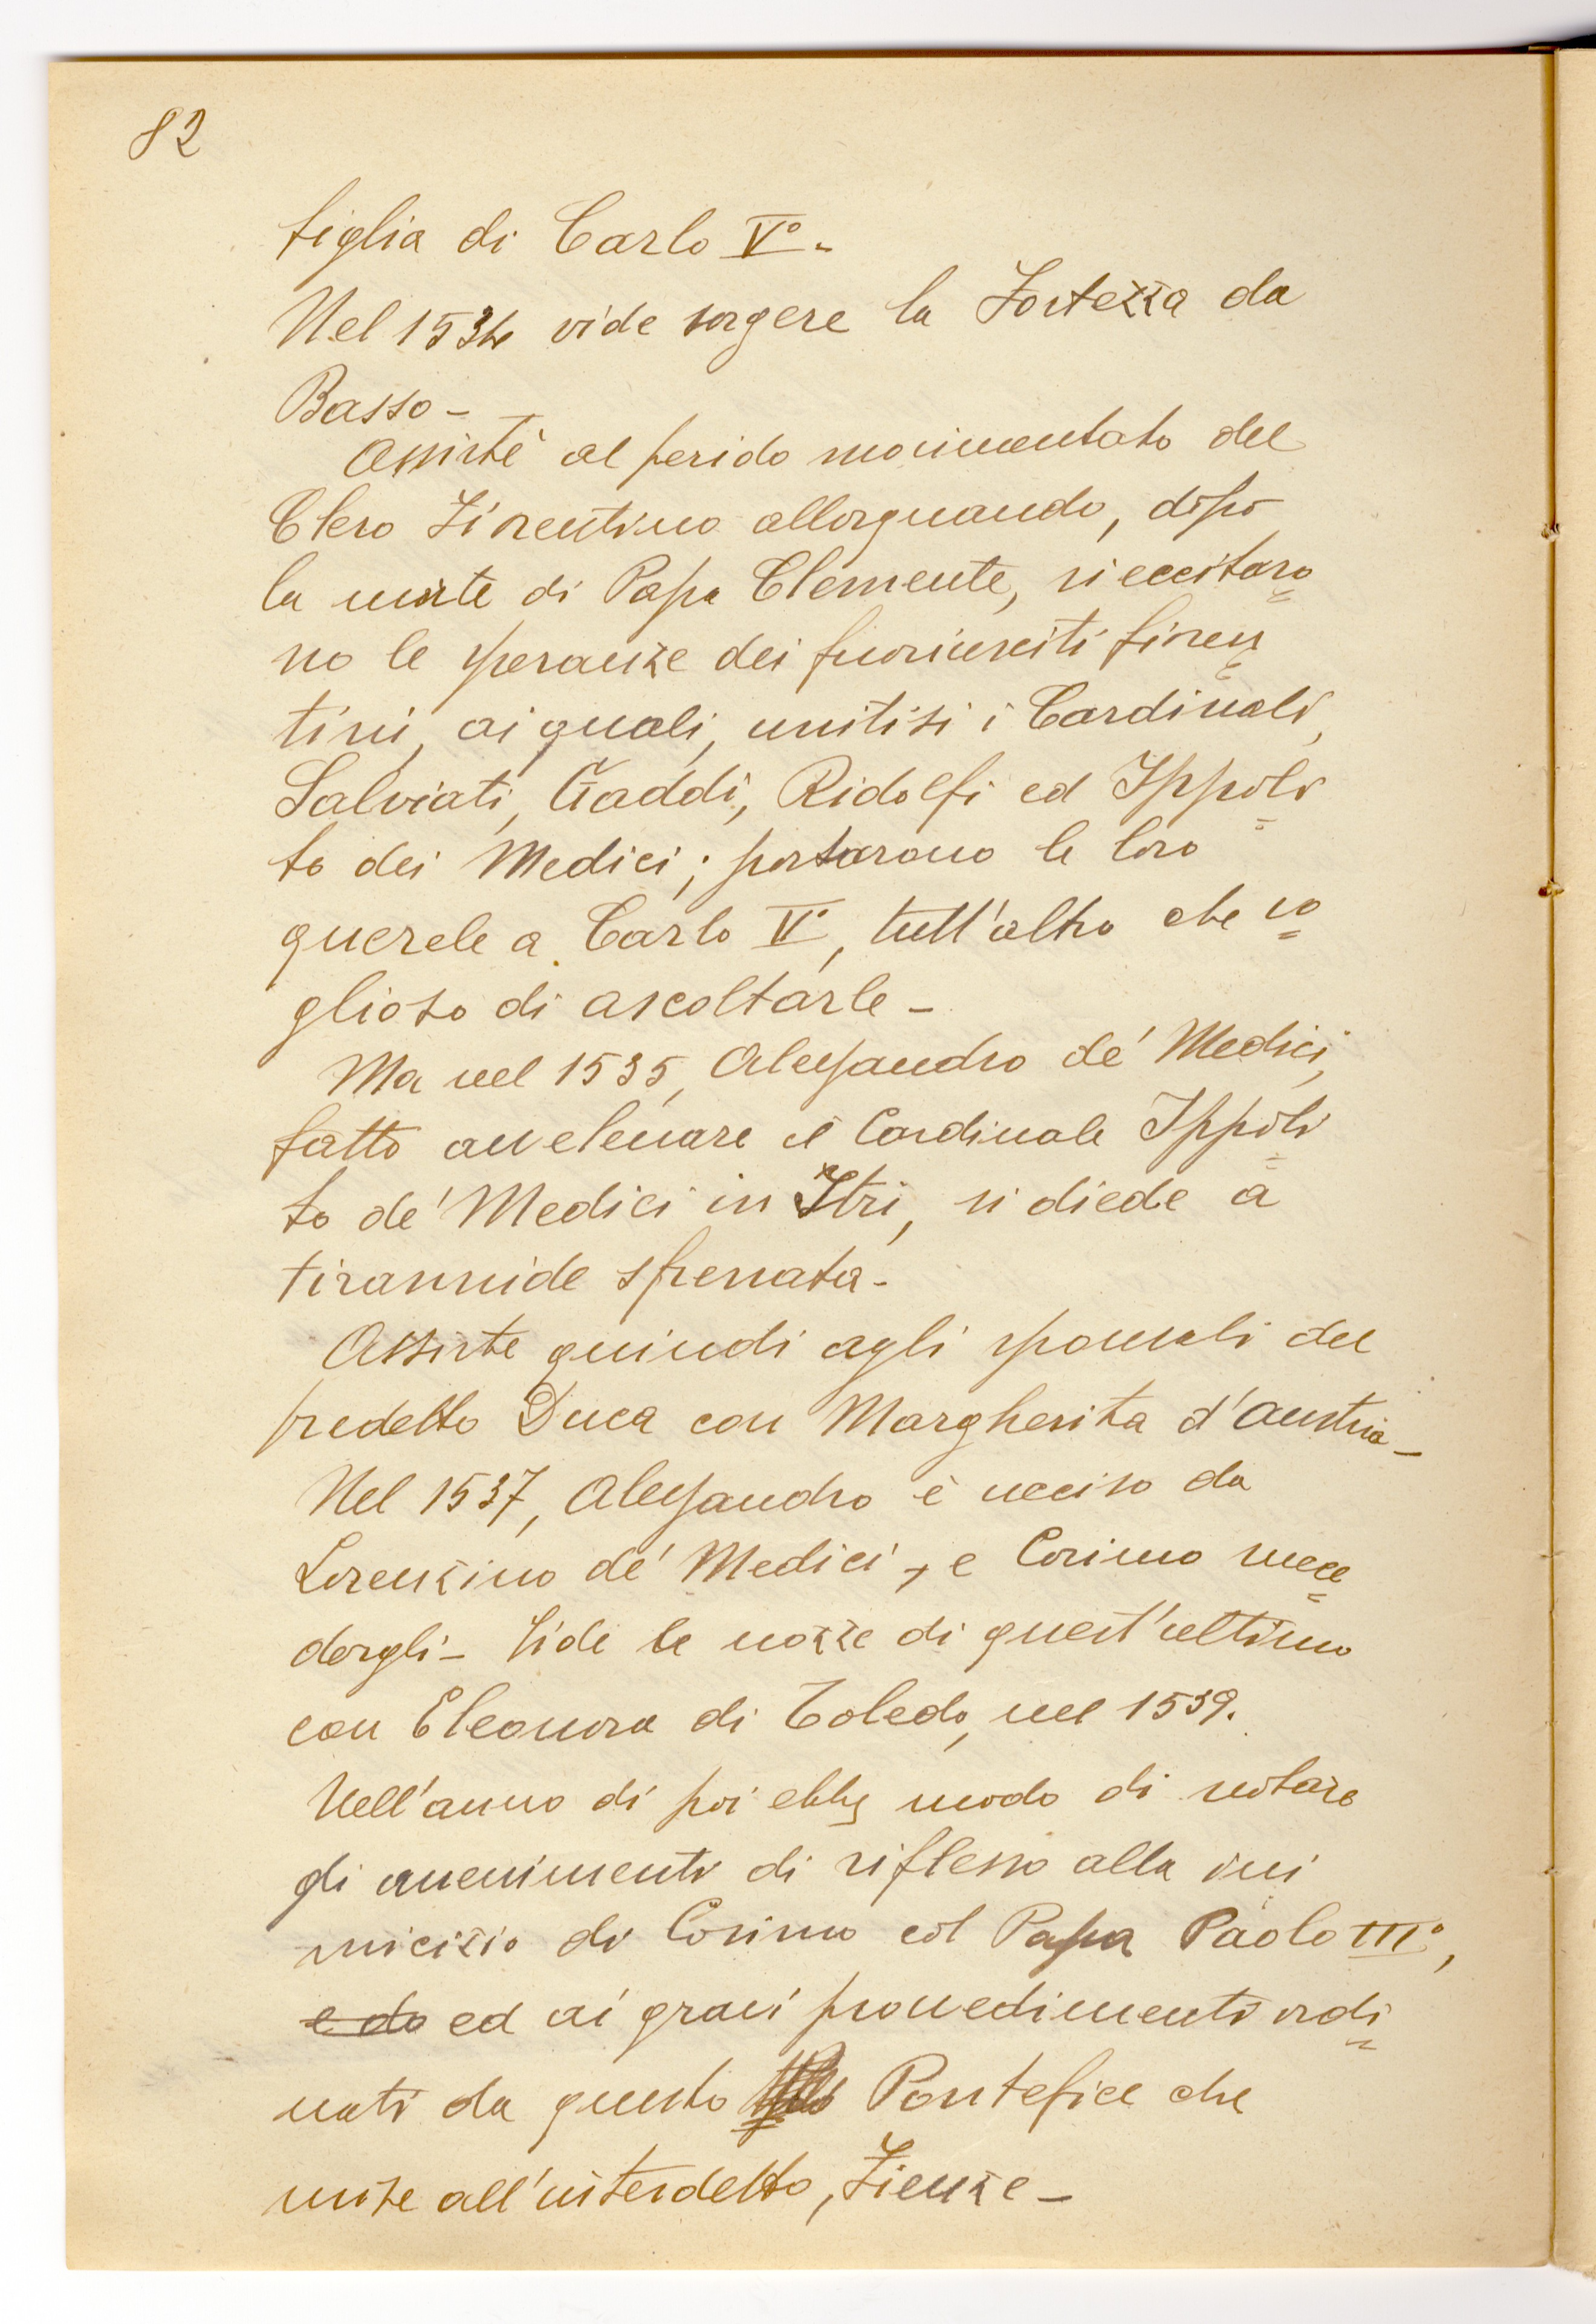 82
figlia di Carlo V°-
Nel 1534 vide sorgere la Fortezza da
Basso-
Assistè al perido movimentato del
Clero Fiorentino allorquando, dopo
la morte di Papa Clemente, si eccitaro=
no le speranze dei fuoriusciti fioren=
tini, ai quali, unitisi i Cardinali,
Salviati, Gaddi, Ridolfi ed Ippoli=
to dei Medici; portarono le loro
querele a Carlo V°, tutt'altro che vo=
glioso di ascoltarle-
Ma nel 1535, Alessandro de' Medici,
fatto avvelenare il Cardinale Ippoli=
to de' Medici in Itri, si diede a
tirannide sfrenata-
Assistè quindi agli sponsali del
predetto Duca con Margherita d'Austria-
Nel 1537, Alessandro è ucciso da
Lorenzino de' Medici, e Cosimo succe=
dergli- Vide le nozze di quest'ultimo
con Eleonora di Toledo, nel 1539.
Nell'anno di poi ebbe modo di notare
gli avvenimenti di riflesso alla ini
micizia di Cosimo col Papa Paolo III°,
e da ed ai gravi provvedimenti ordi=
nati da questo Pontefice che
mise all'interdetto, Firenze-